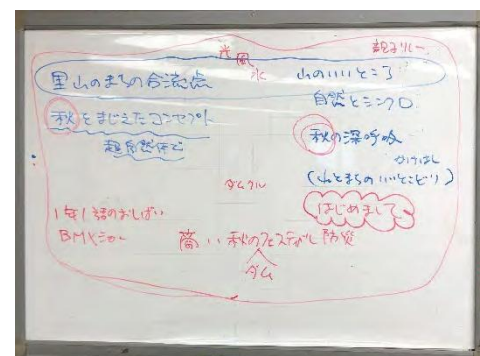 光 風 水
里山のまちの合流点
山のいいところ
自然とシンクロ
秋をまじえたコンセプト
超自然体で
秋の深呼吸
かけはし
(山とまちのいいとこどり)
はじめまして
1年1話のおしばい
BMXショー
秋のフェスティバル 防災
ダム